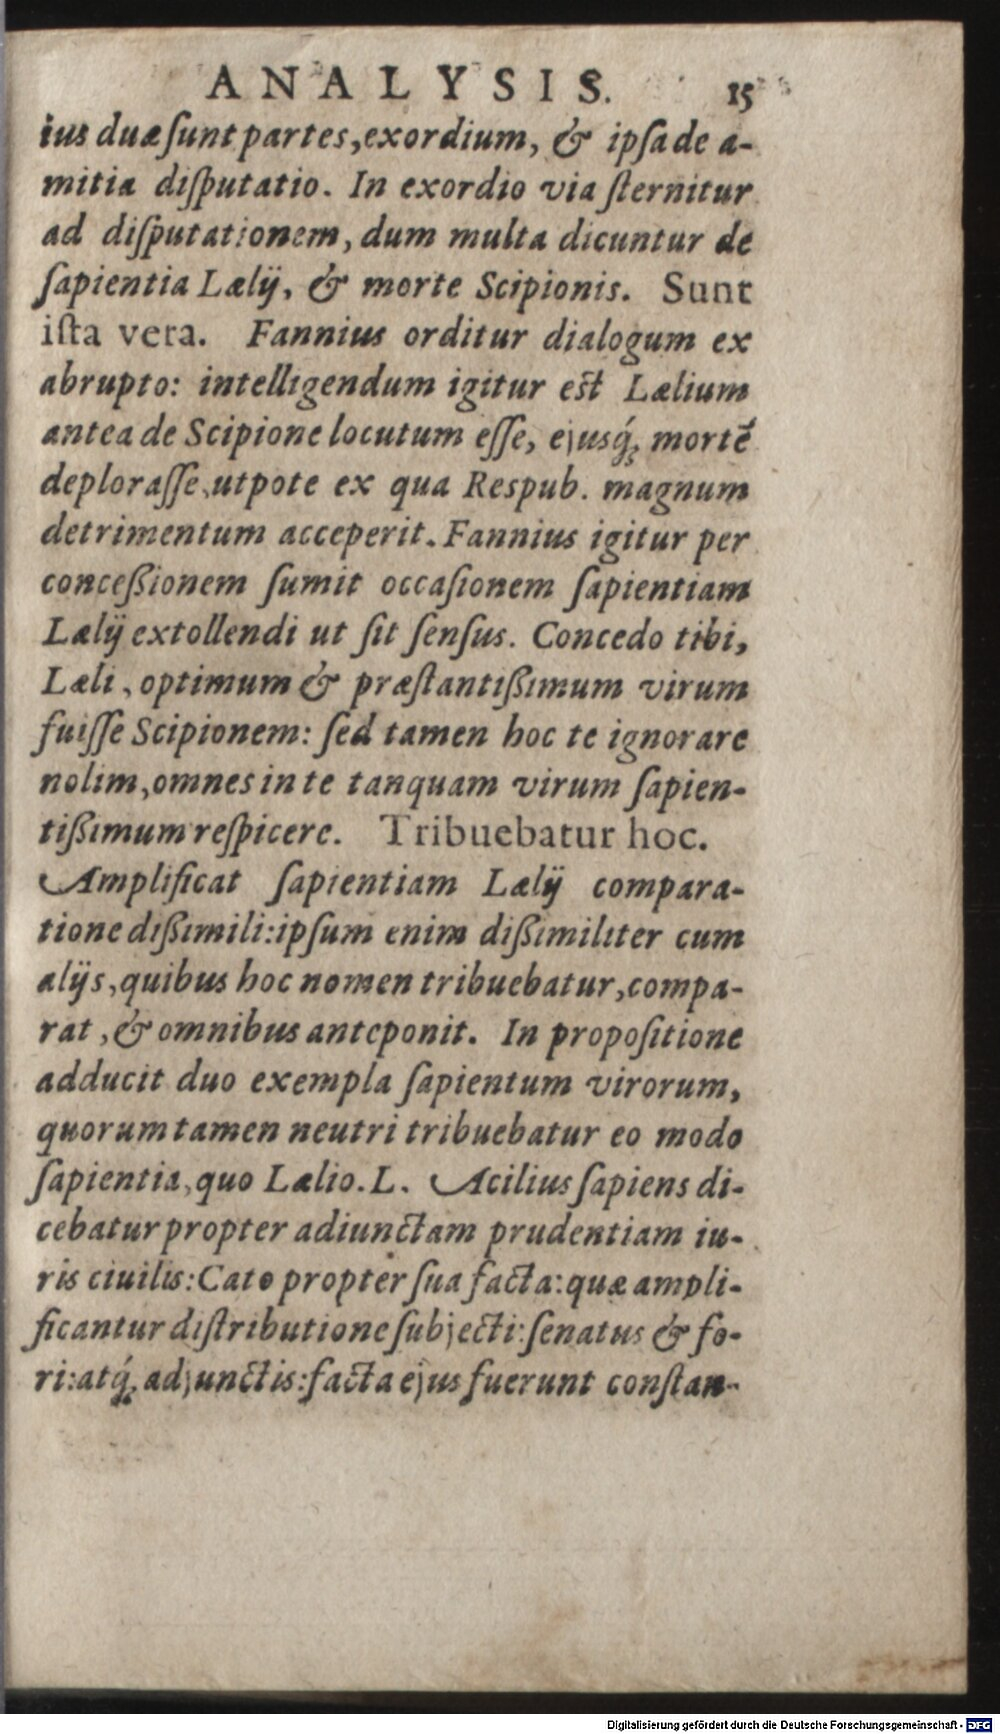 ANALYSIS. 15
ius duæ sunt partes, exordium, & ipsa de a-
mitia disputatio. In exordio via sternitur
ad disputationem, dum multa dicuntur de
sapientia Lælij, & morte Scipionis. Sunt
ista vera. Fannius orditur dialogum ex
abrupto: intelligendum igitur est Lælium
antea de Scipione locutum esse, ejusq́; mortẽ
deplorasse, utpote ex qua Respub. magnum
detrimentum acceperit. Fannius igitur per
conceßionem sumit occasionem sapientiam
Lælij extollendi ut sit sensus. Concedo tibi,
Læli, optimum & præstantißimum virum
fuisse Scipionem: sed tamen hoc te ignorare
nolim, omnes in te tanquam virum sapien-
tißimum respicere. Tribuebatur hoc.
Amplificat sapientiam Lælij compara-
tione dißimili: ipsum enim dißimiliter cum
alijs, quibus hoc nomen tribuebatur, compa-
rat, & omnibus anteponit. In propositione
adducit duo exempla sapientum virorum,
quorum tamen neutri tribuebatur eo modo
sapientia, quo Lælio. L. Acilius sapiens di-
cebatur propter adiunctam prudentiam iu-
ris ciuilis: Cato propter sua facta: quæ ampli-
ficantur distributione subjecti: senatus & fo-
ri: atq́; adjunctis: facta ejus fuerunt constan-
Digitalisierung gefördert durch die Deutsche Forschungsgemeinschaft - DFG